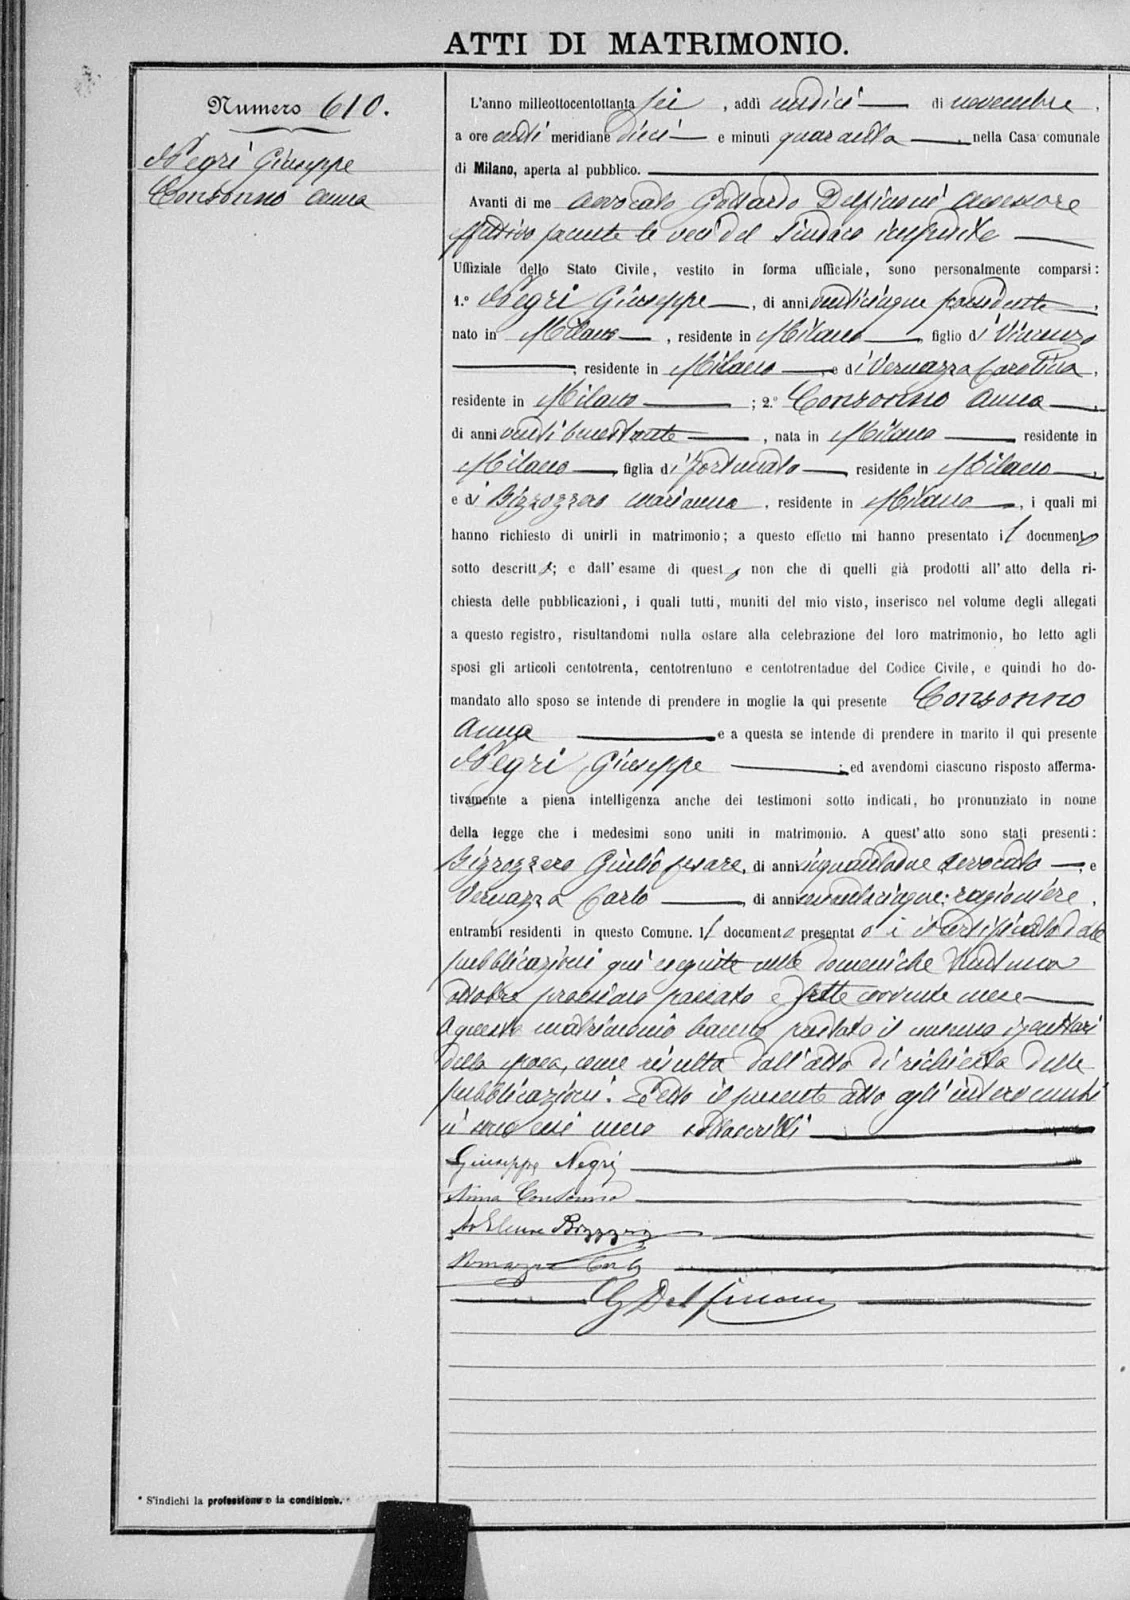 ATTI DI MATRIMONIO.
Numero 610.
Negri Giuseppe
Consonno Anna
L'anno milleottocentottanta sei, addì undici di novembre,
a ore anti meridiane dieci e minuti quaranta, nella Casa comunale
di Milano, aperta al pubblico.
Avanti di me Avvocato Gottardo Delfinoni Assessore
effettivo facente le veci del Sindaco
Uffiziale dello Stato Civile, vestito in forma ufficiale, sono personalmente comparsi:
1.° Negri Giuseppe, di anni venticinque possidente,
nato in Milano, residente in Milano, figlio di Vincenzo
; residente in Milano, e di Vernazza Carolina,
residente in Milano; 2.° Consonno Anna,
di anni venti benestante, nata in Milano residente in
Milano, figlia di Fortunato, residente in Milano,
e di Bizzozzero Marianna, residente in Milano, i quali mi
hanno richiesto di unirli in matrimonio; a questo effetto mi hanno presentato il documento
sotto descritto; e dall'esame di questo, non che di quelli già prodotti all'atto della ri-
chiesta delle pubblicazioni, i quali tutti, muniti del mio visto, inserisco nel volume degli allegati
a questo registro, risultandomi nulla ostare alla celebrazione del loro matrimonio, ho letto agli
sposi gli articoli centotrenta, centotrentuno e centotrentadue del Codice Civile, e quindi ho do-
mandato allo sposo se intende di prendere in moglie la qui presente Consonno
Anna e a questa se intende di prendere in marito il qui presente
Negri Giuseppe; ed avendomi ciascuno risposto afferma-
tivamente a piena intelligenza anche dei testimoni sotto indicati, ho pronunziato in nome
della legge che i medesimi sono uniti in matrimonio. A quest'atto sono stati presenti:
Bizzozzero Giulio Cesare, di anni cinquantadue Avvocato, e
Vernazza Carlo, di anni ragioniere,
entrambi residenti in questo Comune. Il documento presentato è il certificato delle
pubblicazioni qui eseguite nelle domeniche trentuno
ottobre prossimo passato e sette corrente mese
A questo matrimonio hanno prestato il consenso i genitori
della sposa, come risulta dall'atto di richiesta delle
pubblicazioni. Letto il presente atto agli intervenuti
si sono essi meco sottoscritti
Giuseppe Negri
Anna Consonno
Bizzozzero
Vernazza Carlo
G Delfinoni
* S'indichi la professione o la condizione.